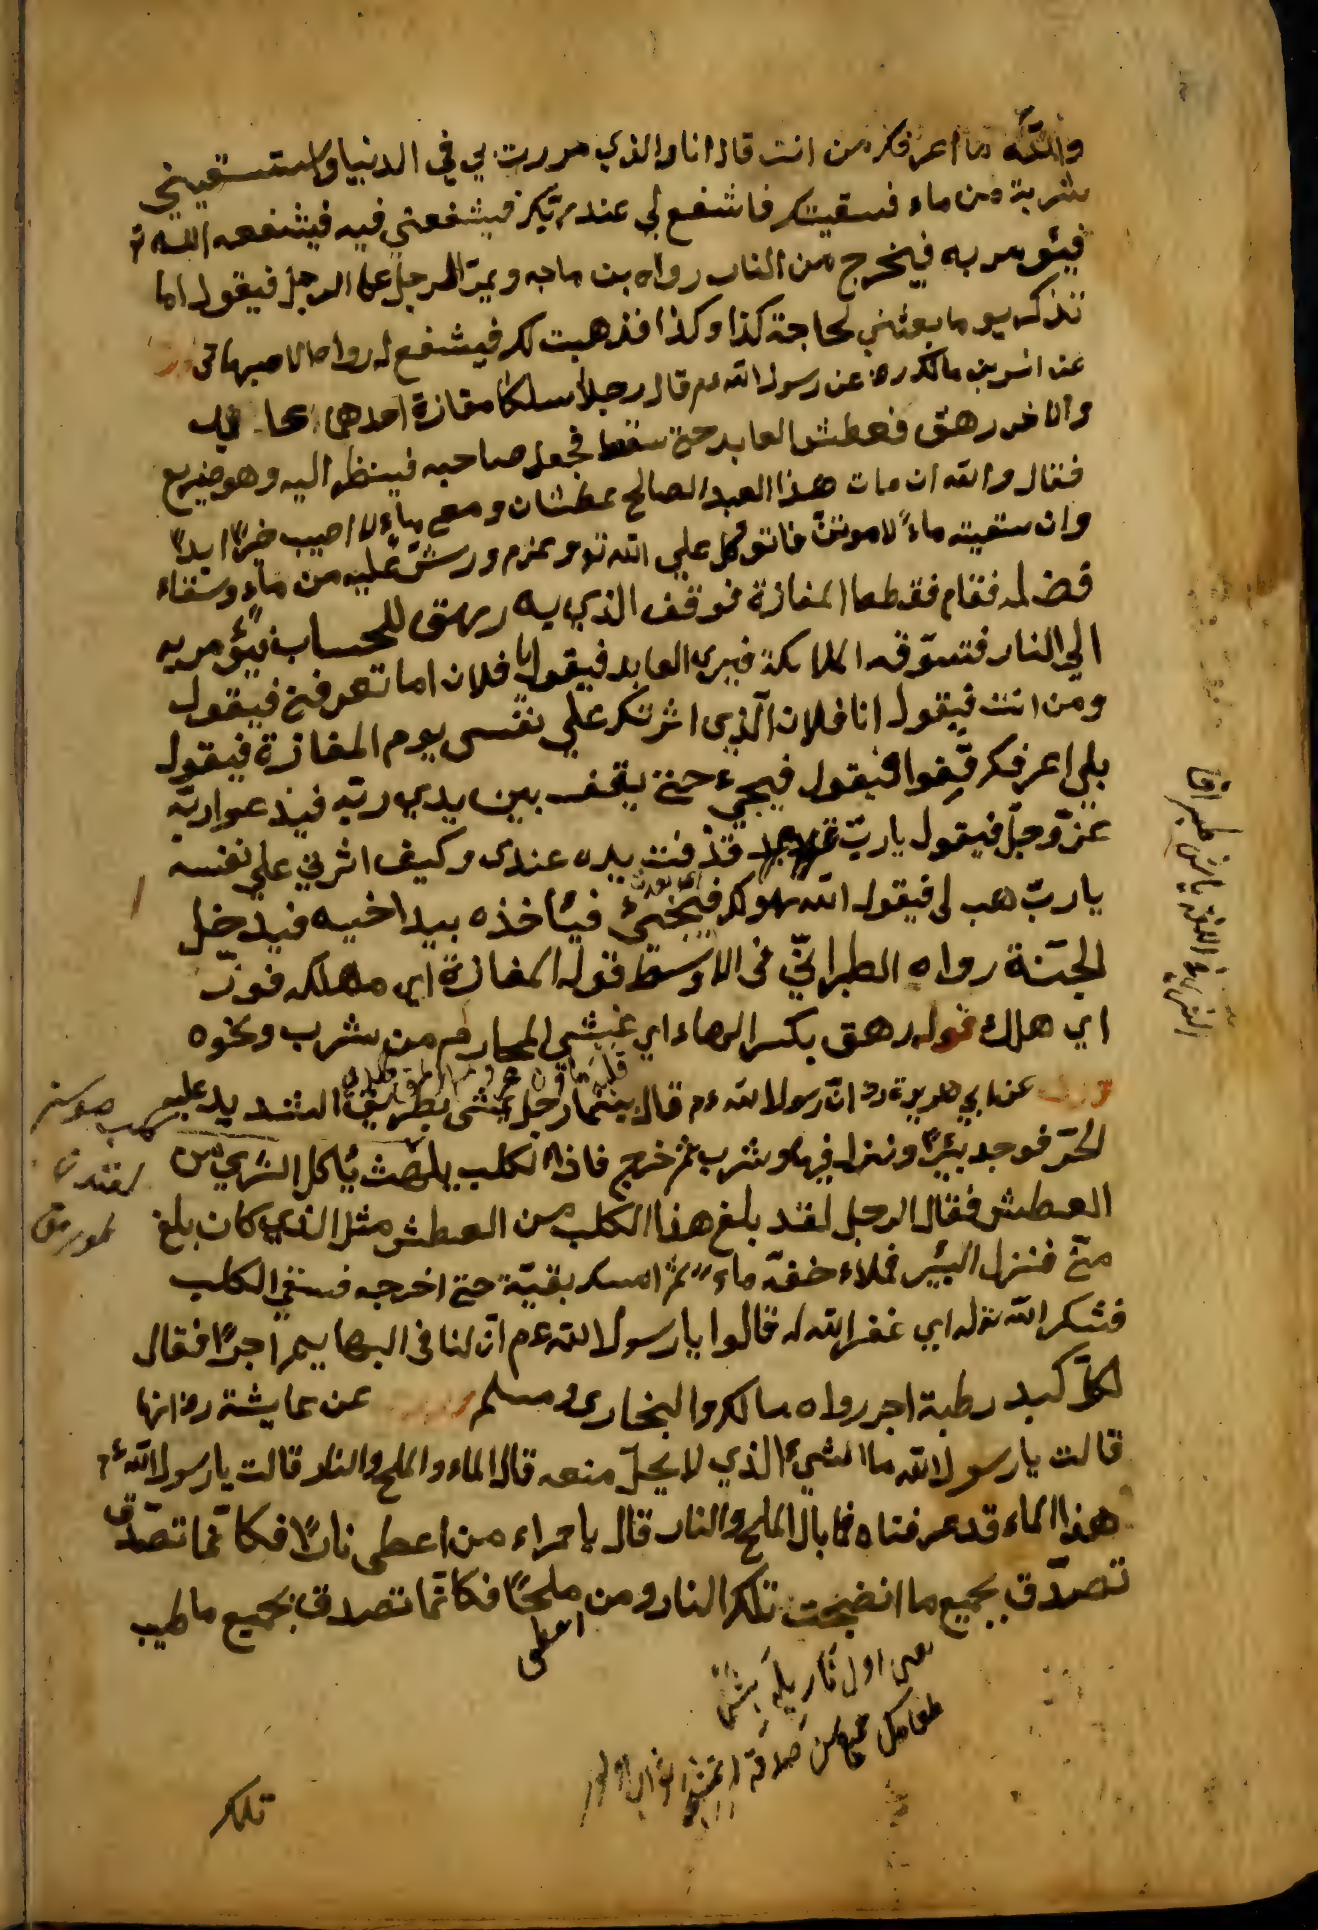 والله ما اعرفك من انت قال انا والذي مررت بي في الدنيا واستسقيتني
شربة من ماء فسقيتك فاشفع لي عند ربك فيشفعني فيه فيشفعه الله تع
فيئومر به فيخرج من النار رواه بن ماجه ويمر الرجل على الرجل فيقول اما
تذكر يوما بعثتني لحاجة كذا وكذا فذهبت لك فيشفع له رواه الاصبهاني
عن انس بن مالك رض عن رسول الله عم قال رجلان سلكا مفازة احدهما عابد
والاخر رهق فعطش العابد حتى سقط فجعل صاحبه فينظر اليه وهو صريع
فقال والله ان مات هذا العبد الصالح عطشان ومعي ماء لا اصيب خيرًا ابدًا
وان سقيته ماءً لاموتن فاتوكل على الله تع وعزم ورشّ عليه من ماء وسقاء
فضله فقام فقطعا المفازة فوقف الذي به رهق للحساب فيؤمر به
الي النار فتسوّقه الملائكة فيرى العابد فيقول يا فلان اما تعرفني فيقول
ومن انت فيقول انا فلان الّذي اثرتك علي نفسى يوم المفازة فيقول
بلي اعرفك قفوا فيقول فيجيء حتى يقف بين يدي ربّه فيدعوا ربّه
عزّ وجلّ فيقول يا ربّ قد فت يده عندى وكيف اثرني علي نفسه
يا ربّ هب لي فيقول الله هو لك فيجيء فيأخذه بيد اخيه فيدخل
الجنّة رواه الطبرانيّ فى الاوسط قوله المفازة اي مهلكه فوّز
اي هلك قوله رهق بكسر الهاء اي غشي المحارم من شرب ونحوه
عن ابي هريرة رض انّ رسول الله عم قال بينما رجل يمشي بطريق اشتد يد عليه
الحرّ فوجد بئرًا ونزل فيها وشرب ثم خرج فاذا كلب يلهث يأكل الثري من
العطش فقال الرجل لقد بلغ هذا الكلب من العطش مثل الذي كان بلغ
منّي فنزل البئر فملاء خفّه ماء ثم امسك بقيّة حتى اخرجه فسقي الكلب
فشكر الله تع له اي غفر الله له قالوا يا رسول الله عم انّ لنا فى البهايم اجرًا فقال
لكلّ كبد رطبة اجر رواه مالك والبخارى ومسلم عن عايشة رض انها
قالت يا رسول الله ما الشيء الذي لا يحلّ منعه قال الماء والملح والنار قالت يا رسول الله
هذا الماء قد عرفناه فما بال الملح والنار قال يا حمراء من اعطى نارًا فكانّما تصدّق
تصدّق بجميع ما انضجت تلك النار ومن ملحًا فكانّما تصدق بجميع ما طيب
اعطى
تلك